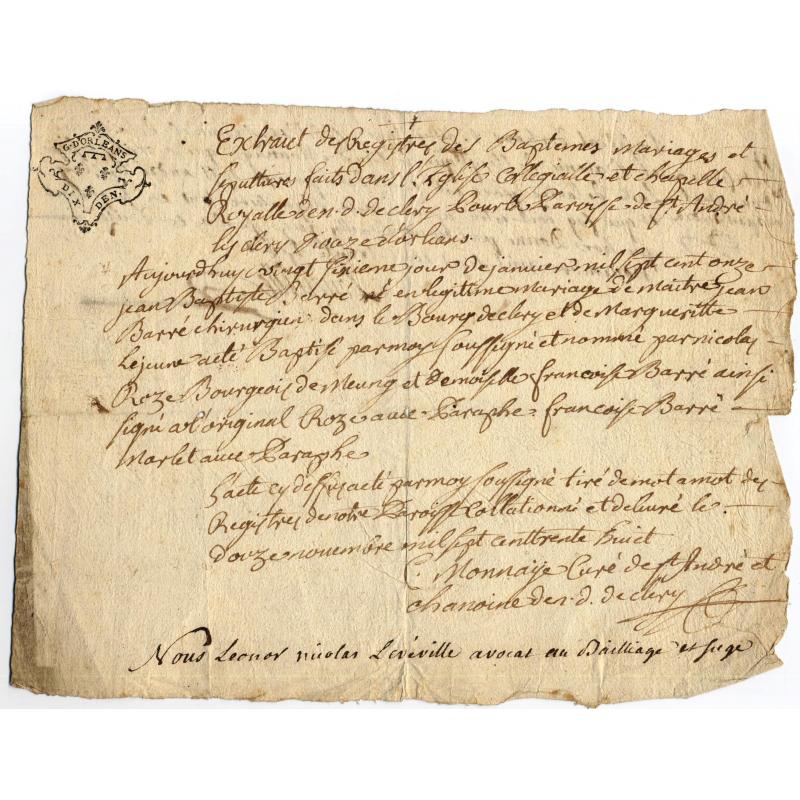 G. D'ORLEANS
DIX DEN.
Extraict des Registres des Baptemes mariages et
sepultures faits dans l'Eglise Collegialle et chapelle
Royalle de n. d. de clery Pour la Paroisse de st André
les clery Diocze d'orleans.
Aujourdhuy vingt sixieme jour de janvier mil sept cent onze
jean Baptiste Barré né en legitime mariage de maitre jean
Barré chirurgien dans le Bourg de clery et de Margueritte
Lejeune a eté Baptisé par moy soussigné et nommé par nicolas
Roze Bourgeois de Meung et Demoiselle francoise Barré ainsi
signé a l'original Roze avec Paraphe francoise Barré
Marlet avec Paraphe
L'acte cy dessus a eté par moy soussigné tiré de mot a mot des
Registres de notre Paroisse Collationné et delivré le
douze novembre mil sept cent trente huict
C. Monnaye Curé de st André et
chanoine de n. d. de clery
Nous Leonor nicolas Leréville avocat au Bailliage et siege